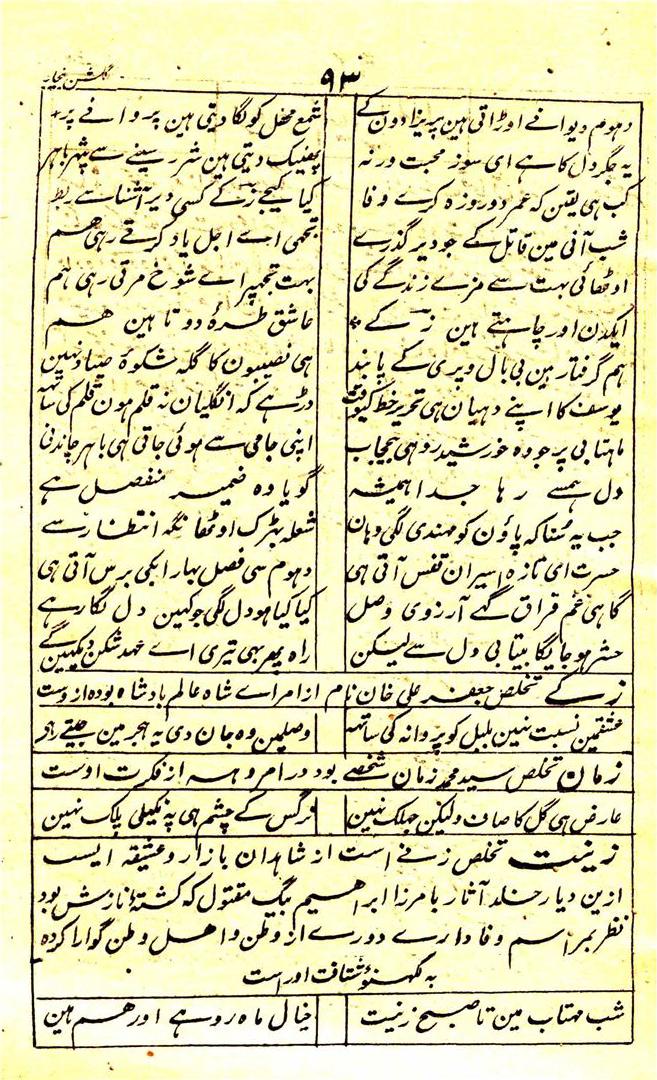 گلشن بیخار
۹۳
دہوم دیوانے اوڑاتی ہین پریزادون کے شمع محفل کو لگا دیتی ہین پروانے پر
یہ جگر دل کا ہے ای سوز محبت ورنہ پھینک دیتی ہین شرر سینے سے پتھر باہر
کب ہی یقین کہ عمر دو روزہ کرے وفا کیا کیجے زکے کسی دیر آشنا سے ربط
شب آنی مین قاتل کے جو دیر گذرے تجھی اے اجل یاد کرتے رہی ہم
اوٹھائی بہت سے مزے زندگے کی بہت تجھپر اے شوخ مرتی رہی ہم
ایکدن اور چاہتے ہین زکے عاشق طرۂ دوتا ہین ہم
ہم گرفتار ہین بی بال وپری کے پابند ہی نصیبون کا گلہ شکوۂ صیاد نہین
یوسف کا اپنے دہیان ہی تحریر خط کیوقت ڈر ہے کہ انگلیان نہ قلم ہون قلم کی ساتھ
ماہتابی پر جو وہ خورشید رو ہی بیحجاب اپنی جامی سے ہوئی جاتی ہی باہر چاندنی
دل ہمسے رہا جدا ہمیشہ گویا وہ ضمیر منفصل ہے
جب یہ سُنا کہ پاؤن کو مہندی لگی وہان شعلہ بہڑک اوٹھا نگہ انتظار سے
حسرت ای تازہ اسیران قفس آتی ہی دہوم سی فصل بہار ابکی برس آتی ہی
گاہی غم فراق گہے آرزوی وصل کیا کیا ہو دل لگی جو کہین دل لگا رہے
حشر ہو جایگا بیتابی دل سے لیکن راہ پھر بہی تیری اے عہد شکن دیکہینگے
زکے تخلص جعفر علی خان نام از امراے شاہ عالم بادشاہ بودہ ازوست
عشقمین نسبت نہین بلبل کو پروانہ کی ساتھ وصلمین وہ جان دی یہ ہجر مین جیتے رہی
زمان تخلص سید محمد زمان شخصے بود در امروہہ از فکرت اوست
عارض ہی گل کا صاف ولیکن جہلک نہین نرگس کے چشم ہی پہ نکیلی پلک نہین
زینت تخلص زنے است از شاہدان بازار وعشیقہ ایست
ازین دیار خلد آثار با مرزا ابراہیم بیگ مقتول کہ کشتۂ نازش بود
نظر بمراسم وفادارے دورے از وطن واہل وطن گوارا کردہ
بہ لکہنؤ شتافت اوراست
شب مہتاب مین تا صبح زینت خیال ماہ رو ہے اور ہم ہین